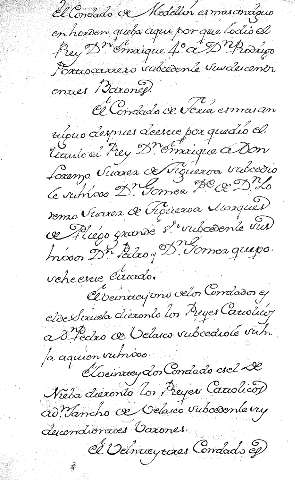 El Condado de Medellin es mas antiguo
en horden que ba aqui, por que lo dió el
Rey Dn Enrrique 4º a Dn Rodrigo
Portocarrero subcedenle sus decenti
entes Barones.
El Condado de Feria es mas an
tiguo despues de este por que dio el
titulo el Rey Dn Enrrique a Don
Lorenzo Suarez de Figueroa subcedio
le su hixo Dn Gomez Pe de Dn Lo
renzo Suarez de Figueroa Marques
de Pliego grande subcedenle sus
hixos Dn Pedro y Dn Gomez que po
sehe este estado.
El veinte y uno de los Condados es
el de Siruela dieronlo los Reyes Catolicos
a Dn Pedro de Velasco subcediole su hi
xa aquien su hixo.
El veinte y dos Condado es el De
Nieba dieronlo los Reyes Catolicos
a Dn Sancho de Velasco subcedenle sus
descendientes Varones.
El Veinte y tres Condado es